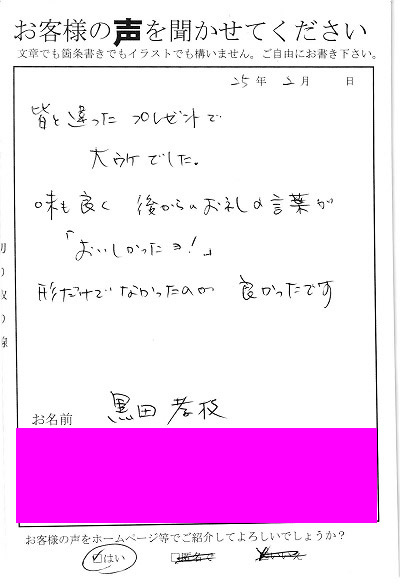 お客様の声を聞かせてください
文章でも箇条書きでもイラストでも構いません。ご自由にお書き下さい。
25年 2月 日
皆と違った プレゼントで
大ウケでした。
味も良く 後からのお礼の言葉が
「おいしかったヨ!」
形だけでなかったのが 良かったです
お名前 黒田 孝枝
お客様の声をホームページ等でご紹介してよろしいでしょうか?
☑はい □匿名で □いいえ